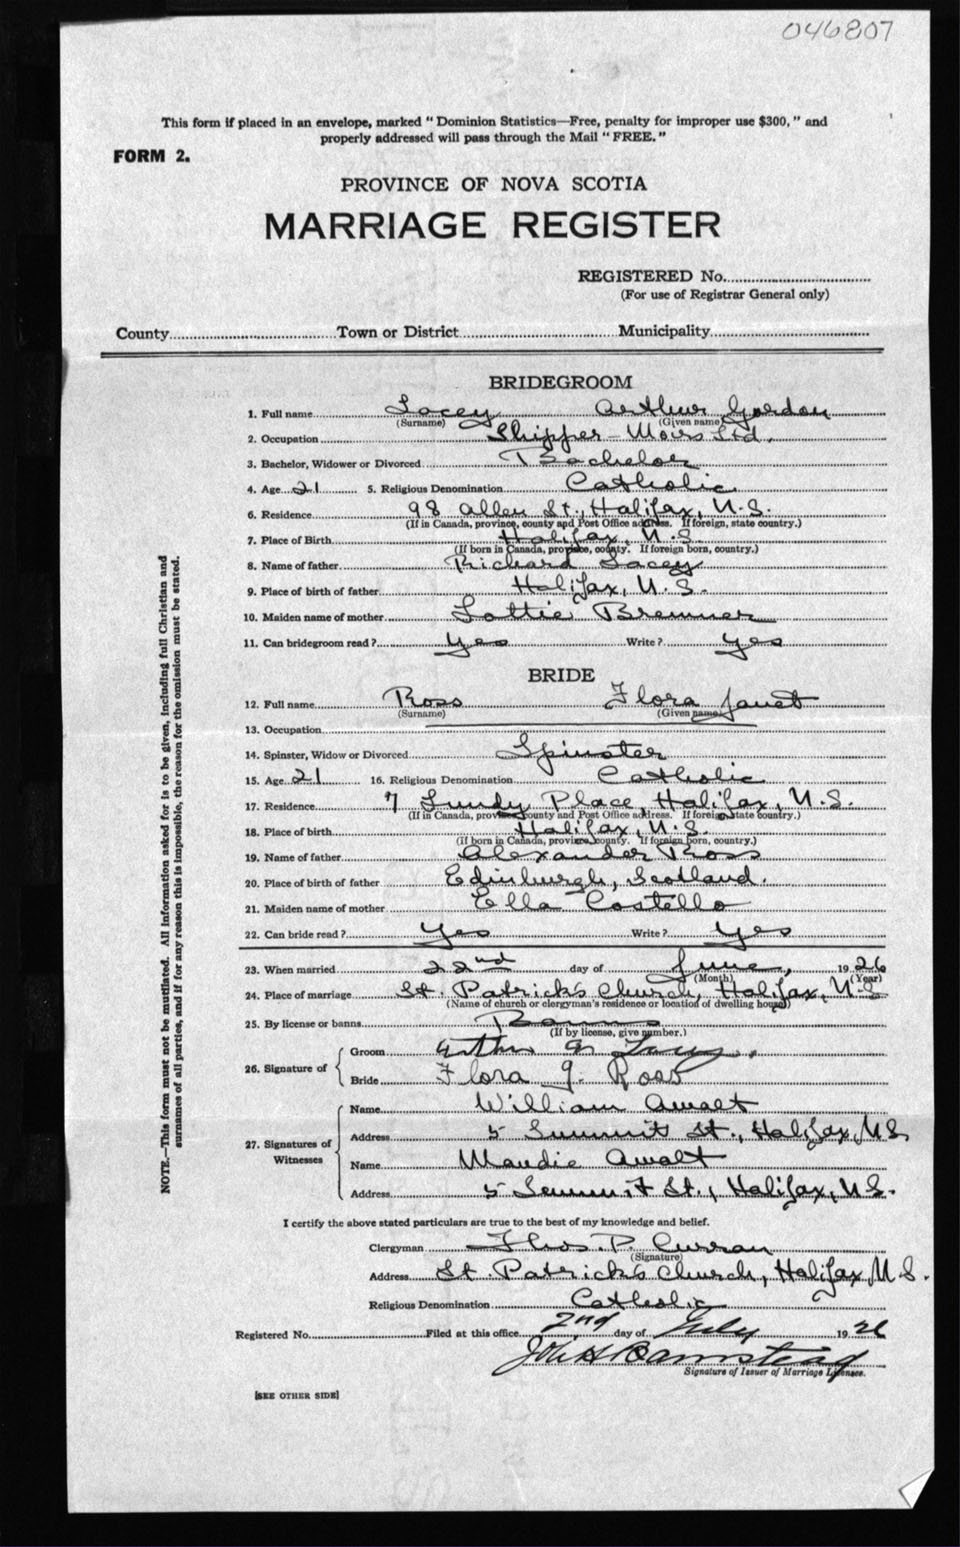 046807
This form if placed in an envelope, marked "Dominion Statistics—Free, penalty for improper use $300," and
properly addressed will pass through the Mail "FREE."
FORM 2.
PROVINCE OF NOVA SCOTIA
MARRIAGE REGISTER
REGISTERED No.
(For use of Registrar General only)
County Town or District Municipality
BRIDEGROOM
1. Full name Lacey Arthur Gordon
(Surname) (Given name)
2. Occupation Shipper - Moirs Ltd.
3. Bachelor, Widower or Divorced Bachelor
4. Age 21 5. Religious Denomination Catholic
6. Residence 98 Allen St., Halifax, N.S.
(If in Canada, province, county and Post Office address. If foreign, state country.)
7. Place of Birth Halifax, N.S.
(If born in Canada, province, county. If foreign born, country.)
8. Name of father Richard Lacey
9. Place of birth of father Halifax, N.S.
10. Maiden name of mother Lottie Bremner
11. Can bridegroom read? Yes Write? Yes
BRIDE
12. Full name Ross Flora Janet
(Surname) (Given name)
13. Occupation
14. Spinster, Widow or Divorced Spinster
15. Age 21 16. Religious Denomination Catholic
17. Residence 7 Lundy Place, Halifax, N.S.
(If in Canada, province, county and Post Office address. If foreign, state country.)
18. Place of birth Halifax, N.S.
(If born in Canada, province, county. If foreign born, country.)
19. Name of father Alexander Ross
20. Place of birth of father Edinburgh, Scotland.
21. Maiden name of mother Ella Costello
22. Can bride read? Yes Write? Yes
23. When married 22nd day of June, 1926
(Month) (Year)
24. Place of marriage St. Patrick's Church, Halifax, N.S.
(Name of church or clergyman's residence or location of dwelling house)
25. By license or banns Banns
(If by license, give number.)
26. Signature of
Groom Arthur G Lacey.
Bride Flora J. Ross
27. Signatures of Witnesses
Name William Awalt
Address 5 Summit St., Halifax, N.S.
Name Maudie Awalt
Address 5 Summit St., Halifax, N.S.
I certify the above stated particulars are true to the best of my knowledge and belief.
Clergyman Thos. P. Curran
(Signature)
Address St. Patrick's Church, Halifax, N.S.
Religious Denomination Catholic
Registered No. Filed at this office 2nd day of July 1926
Signature of Issuer of Marriage Licenses.
[SEE OTHER SIDE]
NOTE.—This form must not be mutilated. All information asked for is to be given, including full Christian and
surnames of all parties, and if for any reason this is impossible, the reason for the omission must be stated.